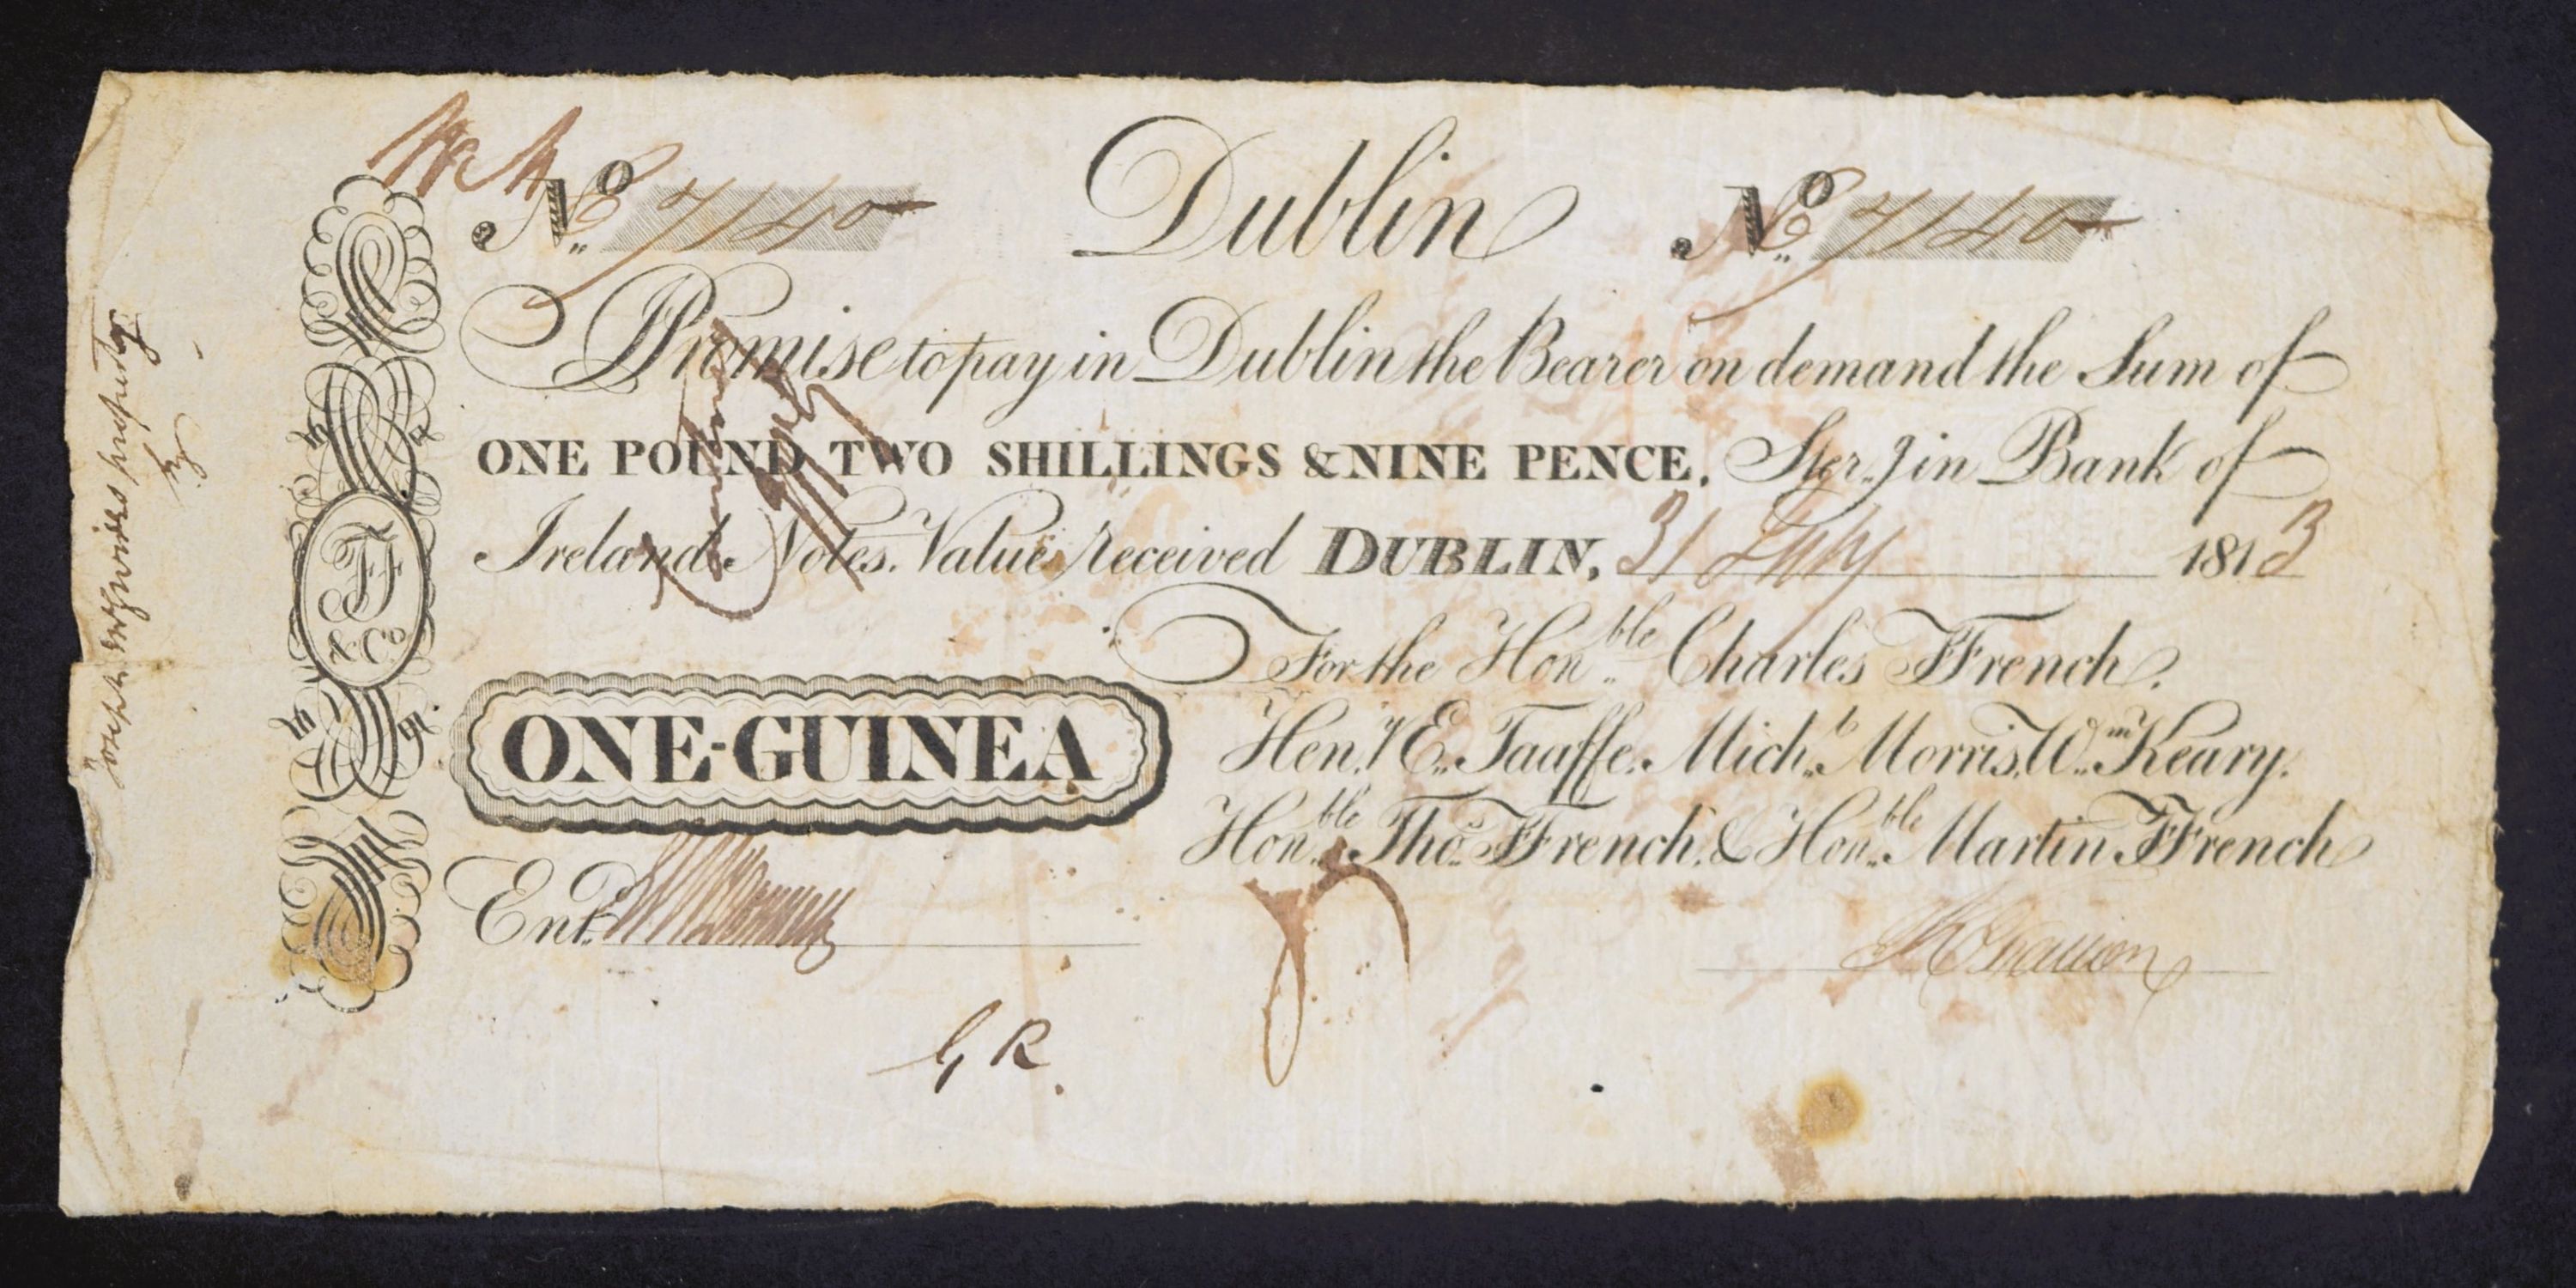 No. 7140 Dublin No. 7140
I Promise to pay in Dublin the Bearer on demand the Sum of
ONE POUND TWO SHILLINGS & NINE PENCE. Ster.g in Bank of
Ireland Notes. Value received DUBLIN, 31 July 1813
For the Hon.ble Charles FFrench.
Hen.y E. Taaffe. Mich.l Morris. W.m Keary.
Hon.ble Tho.s FFrench. & Hon.ble Martin FFrench
FF
& Co
ONE-GUINEA
Ent.d
GR.
Joseph property